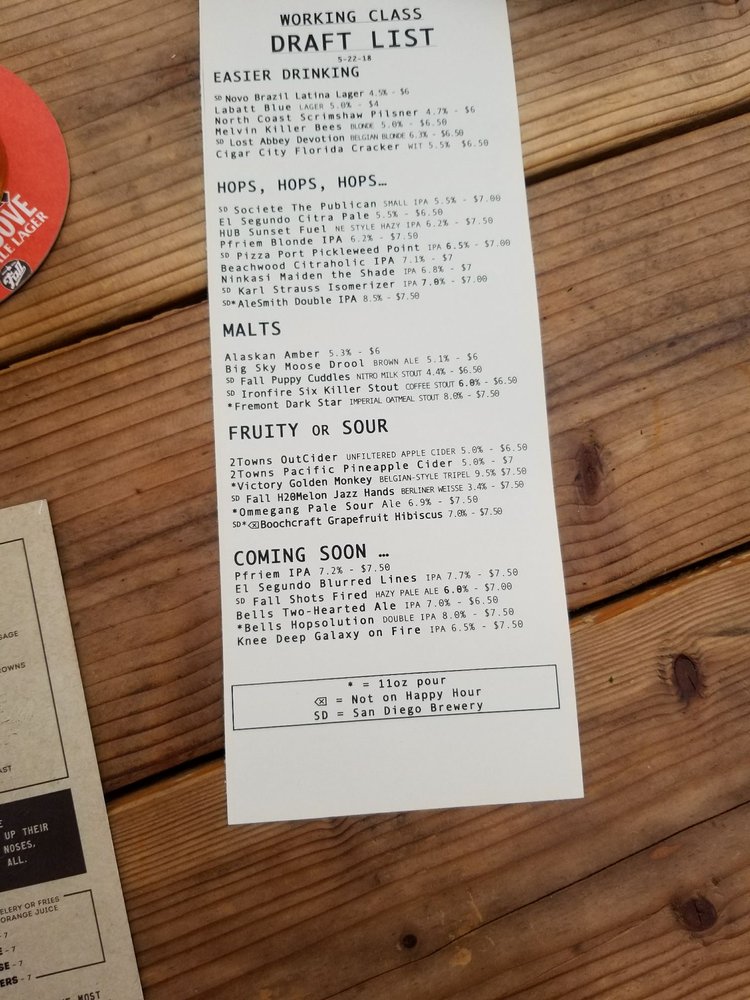 WORKING CLASS
DRAFT LIST
5-22-18
EASIER DRINKING
SD Novo Brazil Latina Lager 4.5% - $6
Labatt Blue LAGER 5.0% - $4
North Coast Scrimshaw Pilsner 4.7% - $6
Melvin Killer Bees BLONDE 5.0% - $6.50
SD Lost Abbey Devotion BELGIAN BLONDE 6.3% - $6.50
Cigar City Florida Cracker WIT 5.5% $6.50
HOPS, HOPS, HOPS…
SD Societe The Publican SMALL IPA 5.5% - $7.00
El Segundo Citra Pale 5.5% - $6.50
HUB Sunset Fuel NE STYLE HAZY IPA 6.2% - $7.50
Pfriem Blonde IPA 6.2% - $7.50
SD Pizza Port Pickleweed Point IPA 6.5% - $7.00
Beachwood Citraholic IPA 7.1% - $7
Ninkasi Maiden the Shade IPA 6.8% - $7
SD Karl Strauss Isomerizer IPA 7.0% - $7.00
SD*AleSmith Double IPA 8.5% - $7.50
MALTS
Alaskan Amber 5.3% - $6
Big Sky Moose Drool BROWN ALE 5.1% - $6
SD Fall Puppy Cuddles NITRO MILK STOUT 4.4% - $6.50
SD Ironfire Six Killer Stout COFFEE STOUT 6.0% - $6.50
*Fremont Dark Star IMPERIAL OATMEAL STOUT 8.0% - $7.50
FRUITY OR SOUR
2Towns OutCider UNFILTERED APPLE CIDER 5.0% - $6.50
2Towns Pacific Pineapple Cider 5.0% - $7
*Victory Golden Monkey BELGIAN-STYLE TRIPEL 9.5% $7.50
SD Fall H20Melon Jazz Hands BERLINER WEISSE 3.4% - $7.50
*Ommegang Pale Sour Ale 6.9% - $7.50
SD*⌫Boochcraft Grapefruit Hibiscus 7.0% - $7.50
COMING SOON …
Pfriem IPA 7.2% - $7.50
El Segundo Blurred Lines IPA 7.7% - $7.50
SD Fall Shots Fired HAZY PALE ALE 6.0% - $7.00
Bells Two-Hearted Ale IPA 7.0% - $6.50
*Bells Hopsolution DOUBLE IPA 8.0% - $7.50
Knee Deep Galaxy on Fire IPA 6.5% - $7.50
* = 11oz pour
⌫ = Not on Happy Hour
SD = San Diego Brewery
LAGER
Fall
UP THEIR
NOSES,
ALL.
OR FRIES
ORANGE JUICE
- 7
- 7
- 7
- 7
MOST